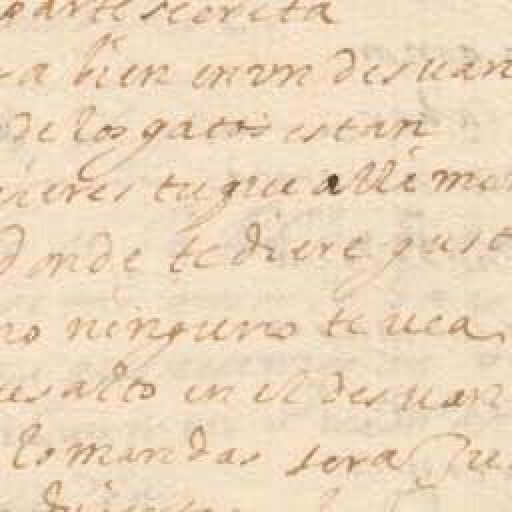 parte secreta
ra bien en vn desuan
de los gatos estan
quieres tu que alli me
donde te diere gust
no ninguno te uea
es alto en el desuan
lo mandas sera